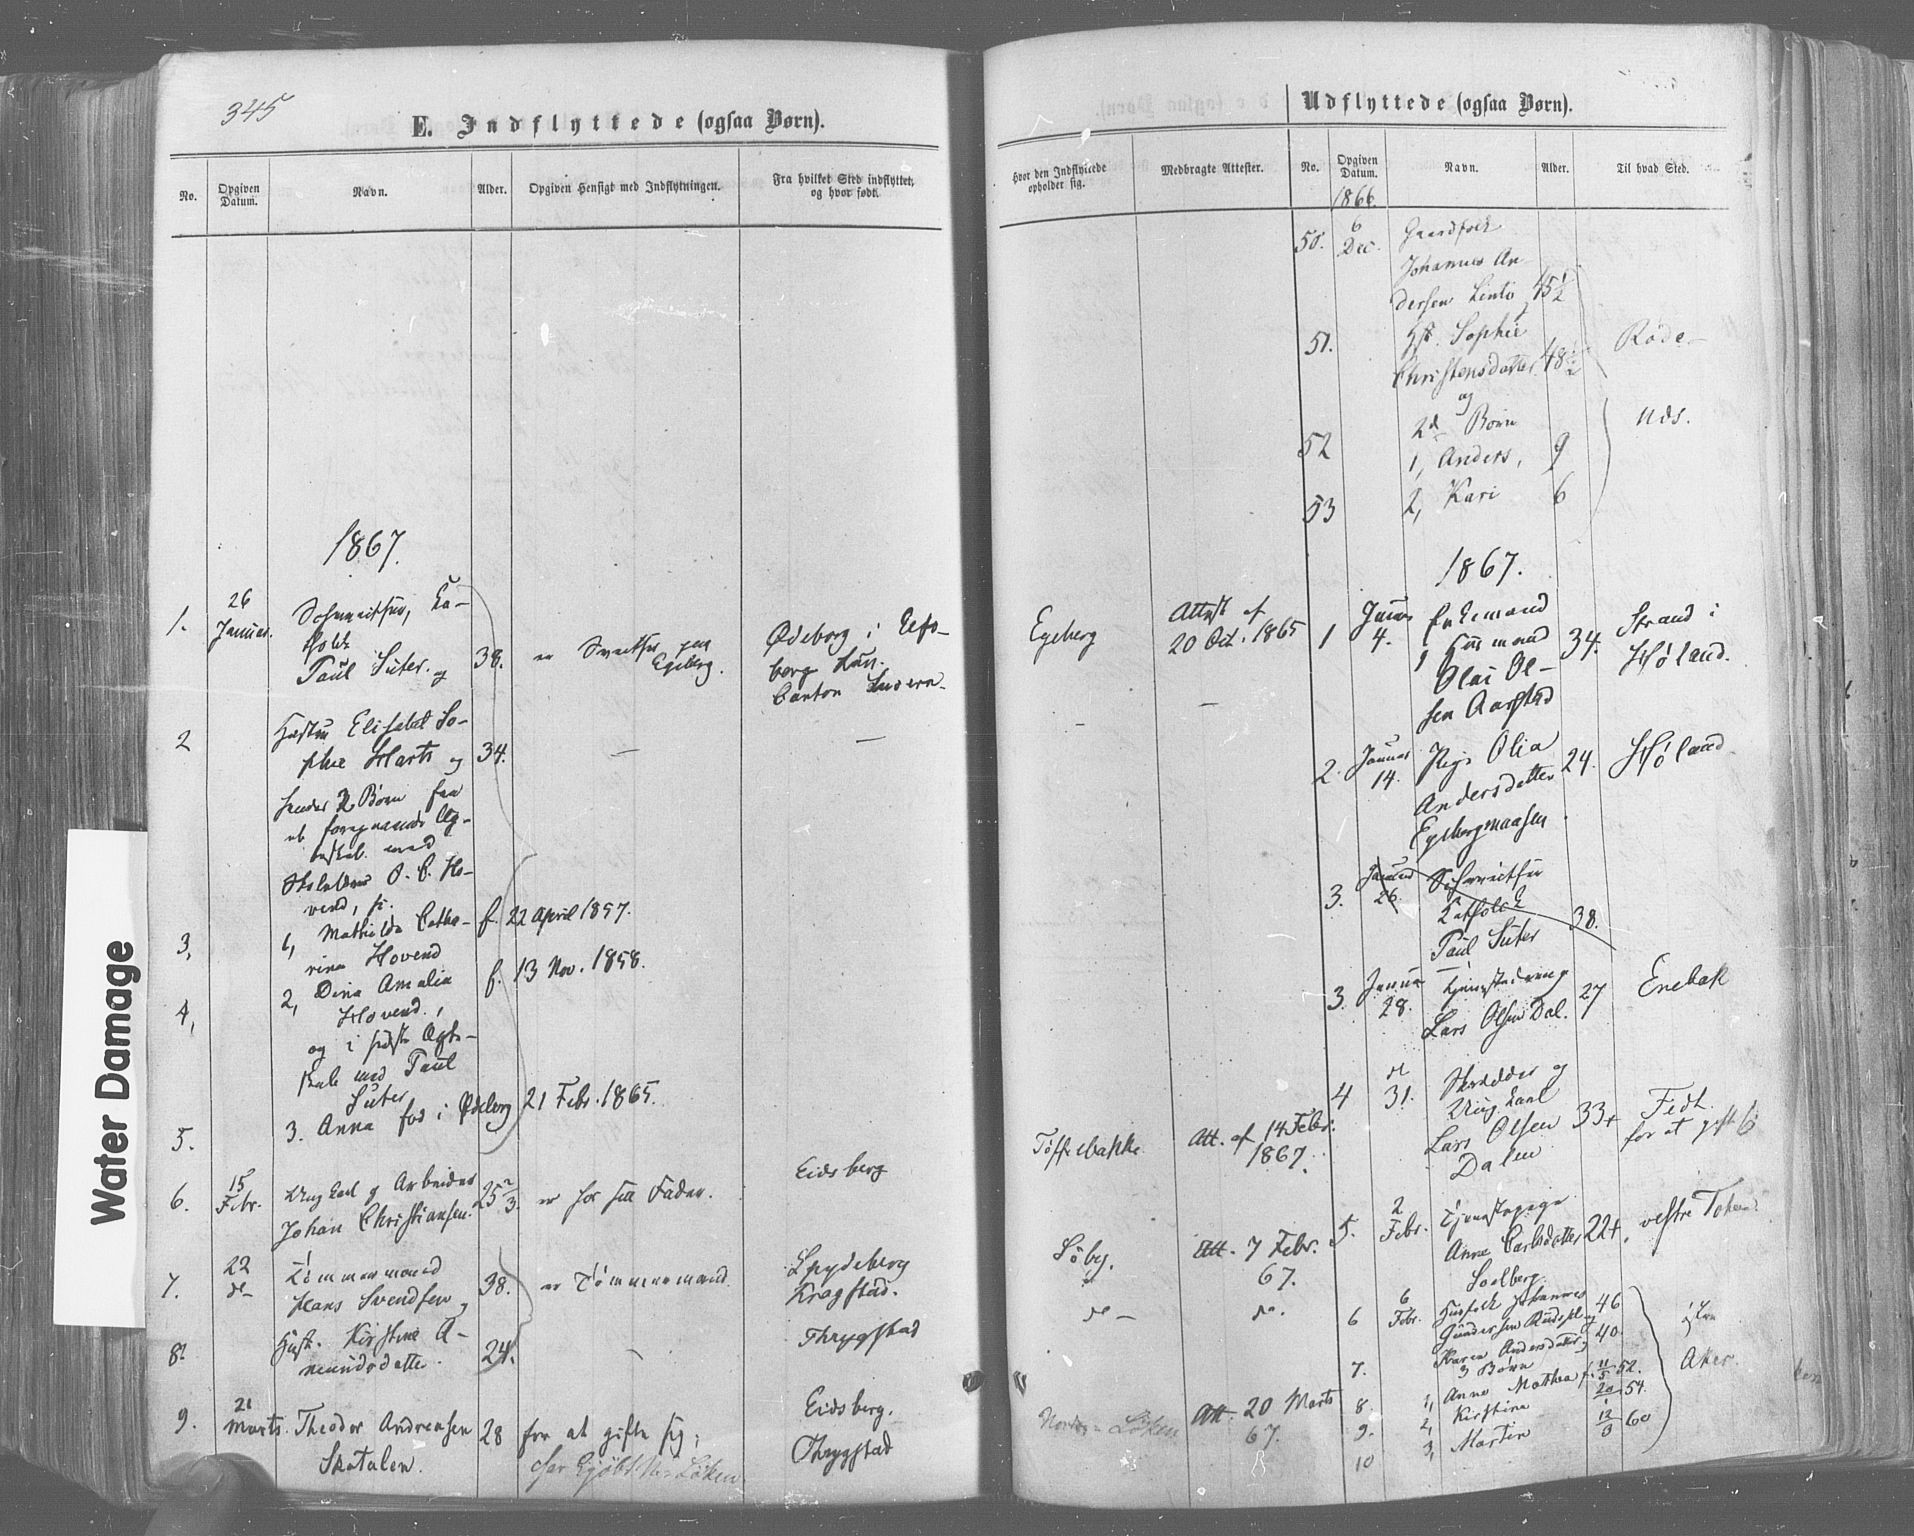 345
E. Indflyttede (ogsaa Børn).
No.
Opgiven Datum.
Navn.
Alder.
Opgiven Hensigt med Indflytningen.
Fra hvilket Sted indflyttet, og hvor født.
1867.
1.
26 Januar.
Schweitser, Ka-
tholik
Paul Suter. og
38.
er Sveitser paa
Egeberg.
Ødeborg i
Canton
2
Hustru Elisabet So-
phie Harts og
34.
—
—
hendes 2 Børn fra
et foregaaende Æg-
teskab med
O. C. Ho-
vend,
3,
1, Mathilda Catha-
rina Hovend
f. 22 April 1857.
4,
2, Dina Amalia
Hovend,
f. 13 Nov. 1858.
og i sidste Ægte-
skab med Paul
Suter
5.
3. Anna fød i Ødeborg
21 Febr. 1865.
6.
15 Febr.
Ungkarl og Arbeider
Johan Christiansen.
25 2/3.
er hos sin Fader.
Eidsberg
7.
22 do
Tømmermand
Hans Svendsen og
38.
er Tømmermand.
Spydeberg
Kragstad.
8.
Hust. Kirstine A-
mundsdatter.
24.
—
Thrygstad
9.
21 Marts.
Theodor Andreasen
Skatalen.
28
for at gifte sig;
har kjøbt Løken
Eidsberg.
Thrygstad
Hvor den Indflyttede opholder sig.
Medbragte Attester.
Egeberg
Attest af
20 Oct. 1865
Tøffelbakke
Att. af 14 Febr.
1867.
Søby.
Att. 7 Febr.
67.
do —
do.
Løken
Att. 20 Marts
67.
Udflyttede (ogsaa Børn).
No.
Opgiven Datum.
Navn.
Alder.
Til hvad Sted.
1866.
50.
6 Dec.
Gaardfolk
Johannes An
dersen Linto
45 1/2
51.
Hst. Sophie
Christensdatter
48 1/2
Røde
og
2de Børn
52
1, Anders,
9
53
2, Kari
6
1867.
1
Januar 4.
Enkemand
Husmand
Olai Ol-
sen Aarstad
34.
Strand i
Høland.
2.
Januar 14.
Pige Olia
Andersdatter
Egebergmaasen
24.
Høland
3.
Januar 26.
Schweitser
Katholik
Paul Suter
38.
3.
Januar 28.
Tjenestedreng
Lars Olsen Dal.
27
Enebak
4
do 31.
Skrædder og
Ungkarl
Lars Olsen
Dalen
33+
for at gifte
5.
2 Febr.
Tjenestepige
Anne Carlsdatter
Soelberg.
22+
vestre
6
6 Febr.
Husfolk Johannes
Gundersen
46
7.
Karen Andersdatter og
40.
3 Børn
8
1, Anne Mathea f. 11/5 52.
9.
2, Kirstine
20/1 54.
10
3, Martin
12/3 60
Aker.
Water Damage